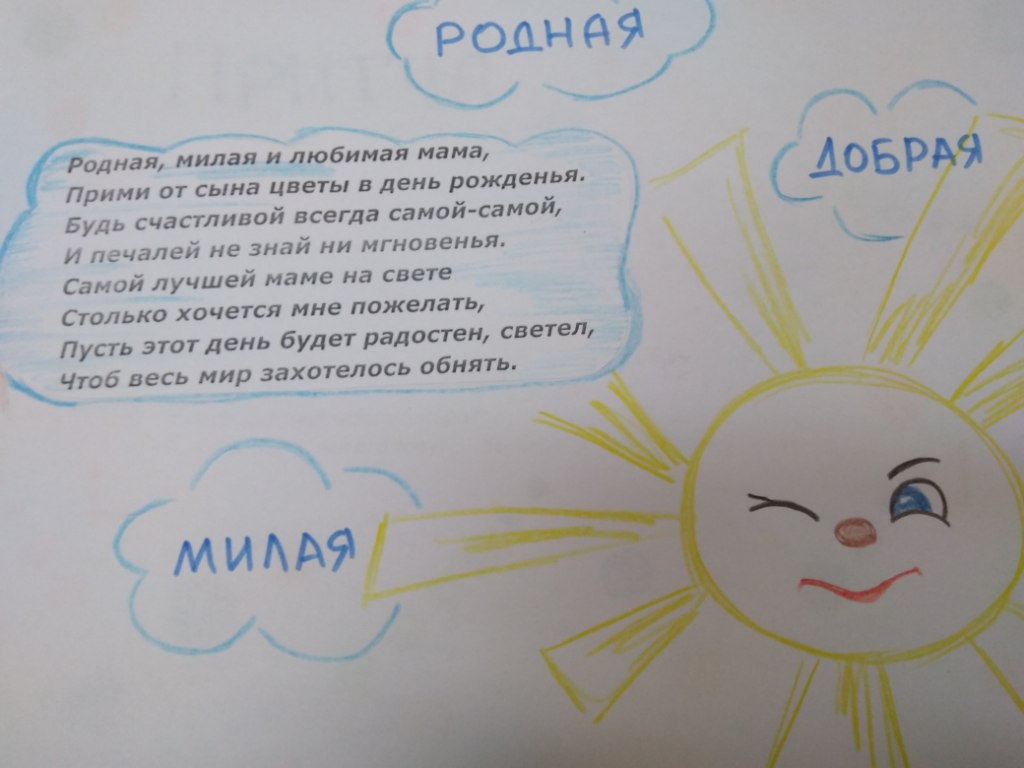 РОДНАЯ
ДОБРАЯ
Родная, милая и любимая мама,
Прими от сына цветы в день рожденья.
Будь счастливой всегда самой-самой,
И печалей не знай ни мгновенья.
Самой лучшей маме на свете
Столько хочется мне пожелать,
Пусть этот день будет радостен, светел,
Чтоб весь мир захотелось обнять.
МИЛАЯ